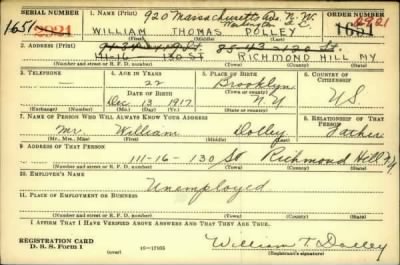 SERIAL NUMBER 1. NAME (Print) 920 Massachusetts Ave. N.W. ORDER NUMBER
1651 2921 Washington D.C. 2921
WILLIAM THOMAS DOLLEY 1651
(First) (Middle) (Last)
2. ADDRESS (Print) 85-43-126 St
111-16 130 ST RICHMOND HILL NY
(Number and street or R. F. D. number) (Town) (County) (State)
3. TELEPHONE 4. AGE IN YEARS 5. PLACE OF BIRTH 6. COUNTRY OF CITIZENSHIP
22 Brooklyn
DATE OF BIRTH (Town or county)
Dec. 13 1917 N.Y U.S.
(Exchange) (Number) (Mo.) (Day) (Yr.) (State or country)
7. NAME OF PERSON WHO WILL ALWAYS KNOW YOUR ADDRESS 8. RELATIONSHIP OF THAT PERSON
Mr. William Dolley Father
(Mr., Mrs., Miss) (First) (Middle) (Last)
9. ADDRESS OF THAT PERSON
111-16-130 St Richmond Hill N.Y.
(Number and street or R. F. D. number) (Town) (County) (State)
10. EMPLOYER'S NAME
Unemployed
11. PLACE OF EMPLOYMENT OR BUSINESS
(Number and street or R. F. D. number) (Town) (County) (State)
I AFFIRM THAT I HAVE VERIFIED ABOVE ANSWERS AND THAT THEY ARE TRUE.
REGISTRATION CARD
D. S. S. Form 1 (over) 16-17105 William T. Dolley
(Registrant's signature)